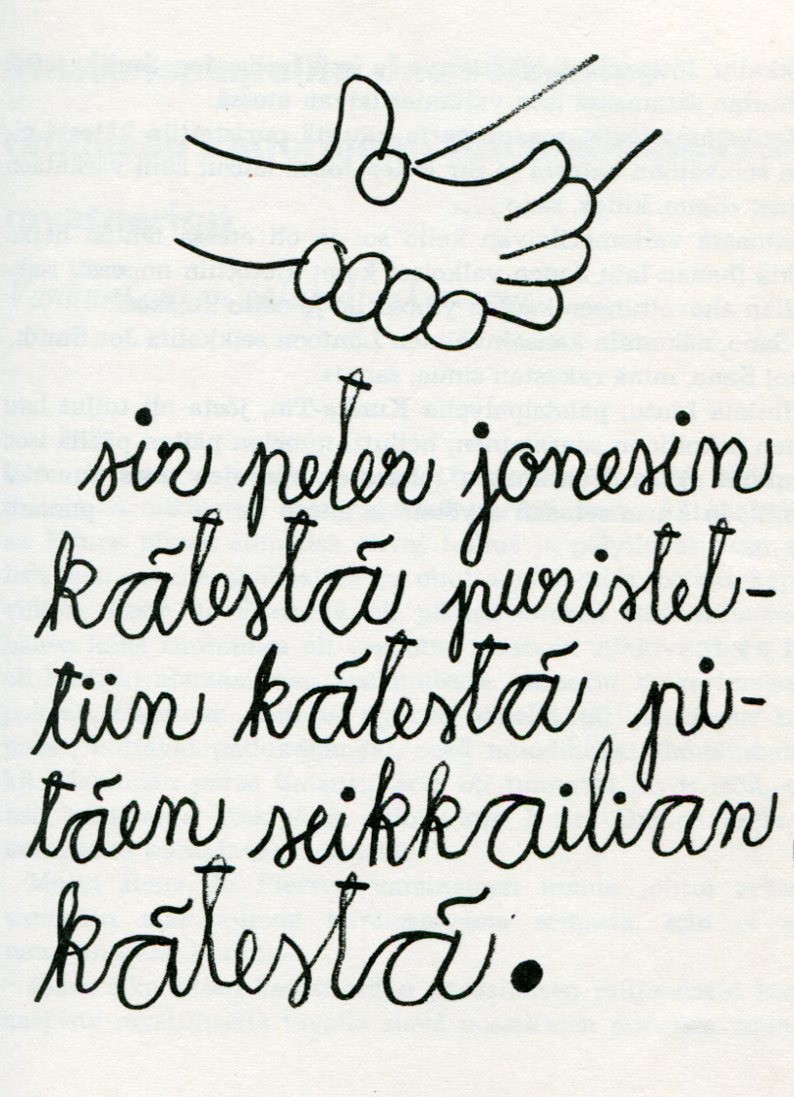 sir peter jonesin
kätestä puristet-
tiin kätestä pi-
täen seikkailian
kätestä.